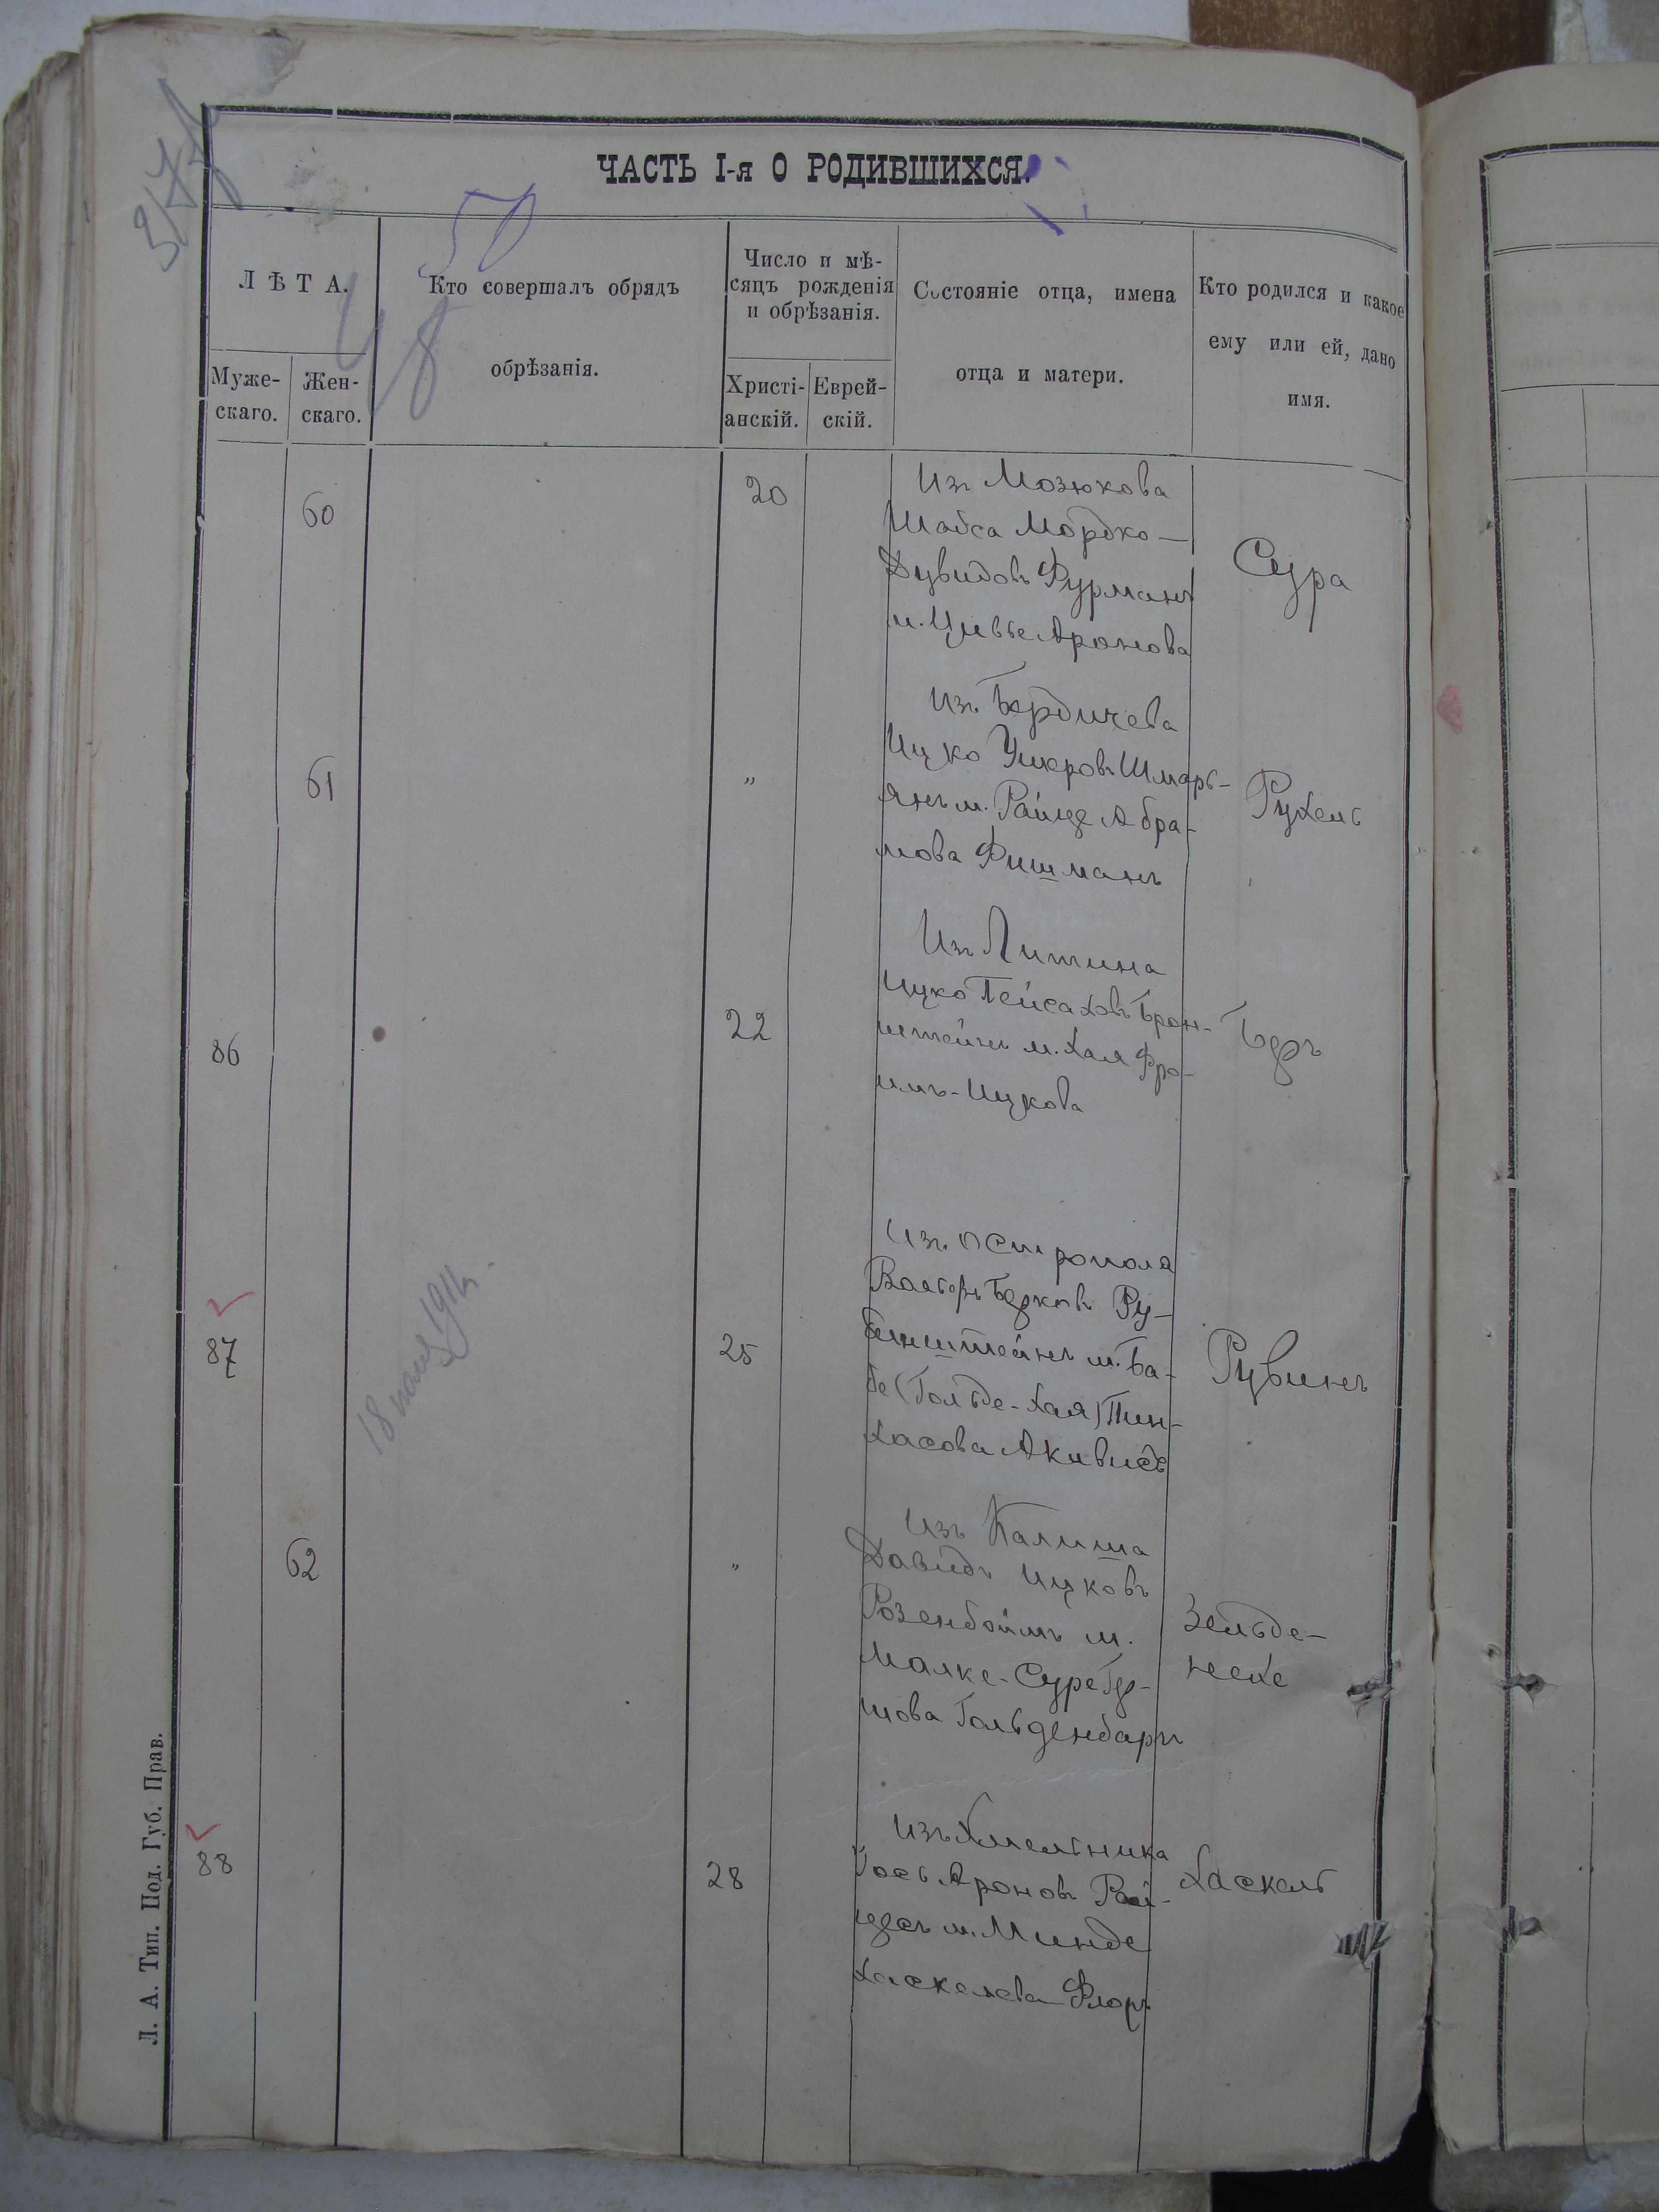 ЧАСТЬ I-я О РОДИВШИХСЯ.
50
48
ЛѢТА.
Муже-
скаго.
Жен-
скаго.
Кто совершалъ обрядъ
обрѣзанія.
Число и мѣ-
сяцъ рожденія
и обрѣзанія.
Христі-
анскій.
Еврей-
скій.
Состояніе отца, имена
отца и матери.
Кто родился и какое
ему или ей, дано
имя.
60
20
Изъ Мозюкова
Шабса Мордко-
Дувидовъ Фурманъ
м. Цивье Аронова
Сура
61
"
Изъ Бердичева
Ицко Ушеровъ Шмарь-
янъ м. Райце Абра-
мова Фишманъ
Рухель
86
22
Изъ Литина
Ицко Пейсаховъ Брон-
штейнъ м. Хая Фро-
имъ-Ицкова
Беръ
87
18 1911г.
25
Изъ Острополя
Вольфъ Берковъ Ру-
бинштейнъ м. Ба-
бе (Гольде-Хая) Пин-
хасова Акивисъ
Рувинъ
62
"
Изъ Калиша
Давидъ Ицковъ
Розенбоймъ м.
Малке-Суре Гер-
шова Гольденбаръ
Зельде-
Нехе
88
28
Изъ Хмельника
Іось Ароновъ Рай-
церъ м. Минде
Хаскелева Флоръ
Хаскель
Л. А. Тип. Под. Губ. Прав.